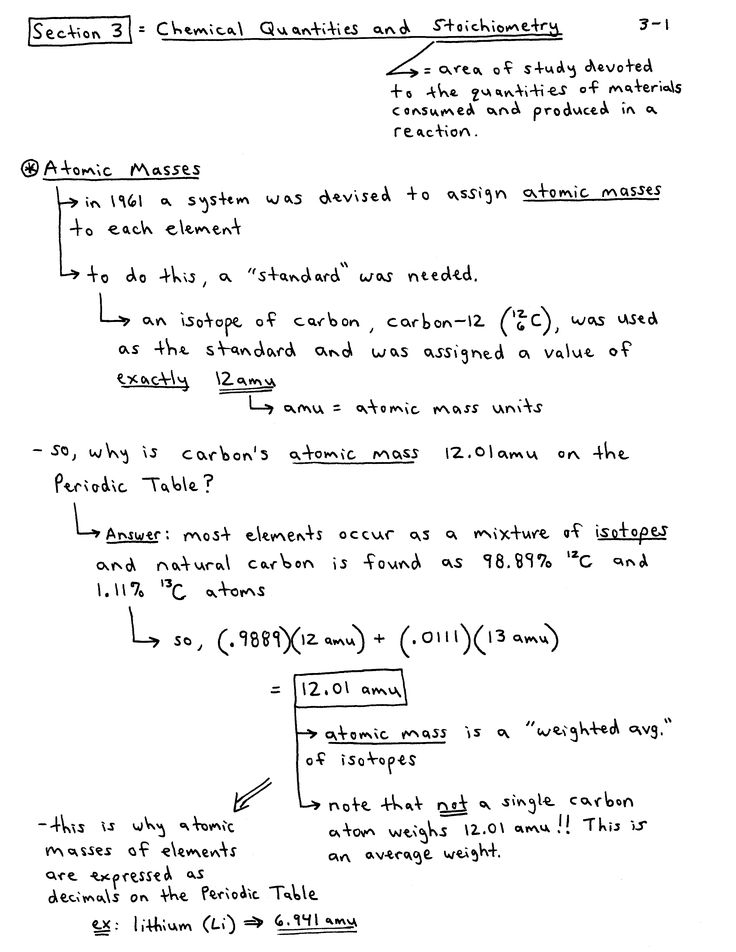 Section 3 = Chemical Quantities and Stoichiometry 3-1
= area of study devoted
to the quantities of materials
consumed and produced in a
reaction.
* Atomic Masses
→ in 1961 a system was devised to assign atomic masses
to each element
→ to do this, a "standard" was needed.
→ an isotope of carbon, carbon-12 (¹²₆C), was used
as the standard and was assigned a value of
exactly 12 amu
→ amu = atomic mass units
- so, why is carbon's atomic mass 12.01 amu on the
Periodic Table?
→ Answer: most elements occur as a mixture of isotopes
and natural carbon is found as 98.89% ¹²C and
1.11% ¹³C atoms
→ so, (.9889)(12 amu) + (.0111)(13 amu)
= 12.01 amu
→ atomic mass is a "weighted avg."
of isotopes
→ note that not a single carbon
atom weighs 12.01 amu!! This is
an average weight.
- this is why atomic
masses of elements
are expressed as
decimals on the Periodic Table
ex: lithium (Li) ⇒ 6.941 amu